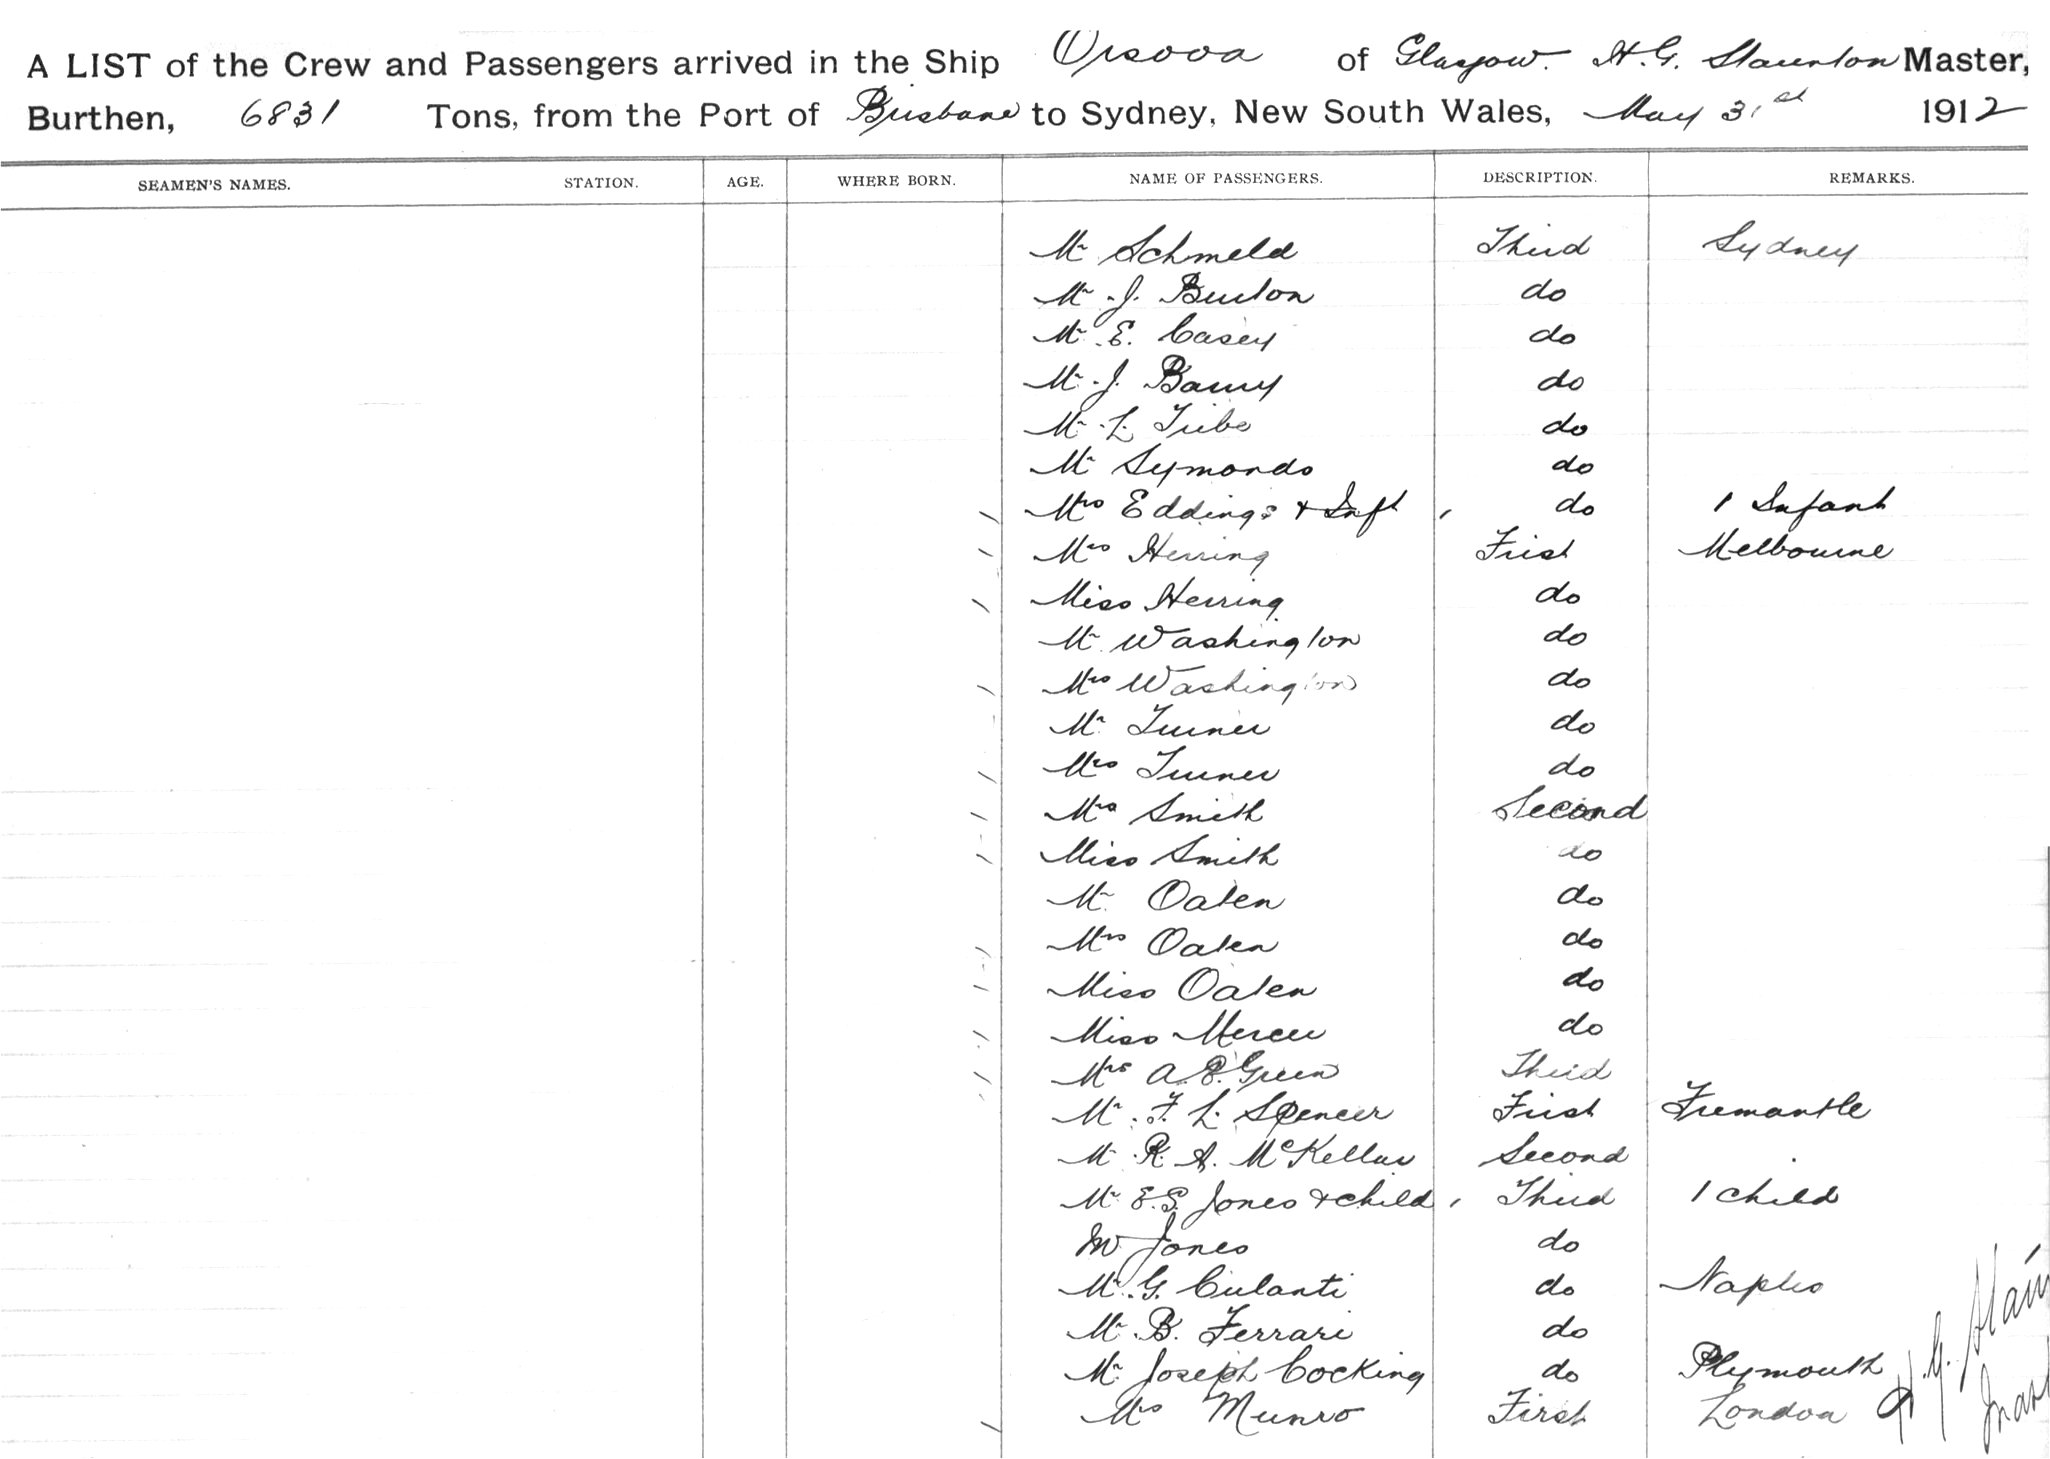 A LIST of the Crew and Passengers arrived in the Ship Orsova of Glasgow. H. G. Staunton Master,
Burthen, 6831 Tons, from the Port of Brisbane to Sydney, New South Wales, May 31st 1912
SEAMEN'S NAMES. STATION. AGE. WHERE BORN. NAME OF PASSENGERS. DESCRIPTION. REMARKS.
Mr Schmeld Third Sydney
Mr J. Burton do
Mr E. Casey do
Mr J Barry do
Mr L Tribe do
Mr Symonds do
Mrs Eddings & Inft do 1 Infant
Mrs Herring First Melbourne
Miss Herring do
Mr Washington do
Mrs Washington do
Mr Turner do
Mrs Turner do
Mrs Smith Second
Miss Smith do
Mr Oaten do
Mrs Oaten do
Miss Oaten do
Miss Mercer do
Mrs A. E. Green Third
Mr F. L. Spencer First Fremantle
Mr R. A. McKellar Second
Mr E. S. Jones & child Third 1 child
Jones do
Mr G. do Naples
Mr B. Ferrari do
Mr Joseph Cocking do Plymouth
Mrs Munro First London
H. G.